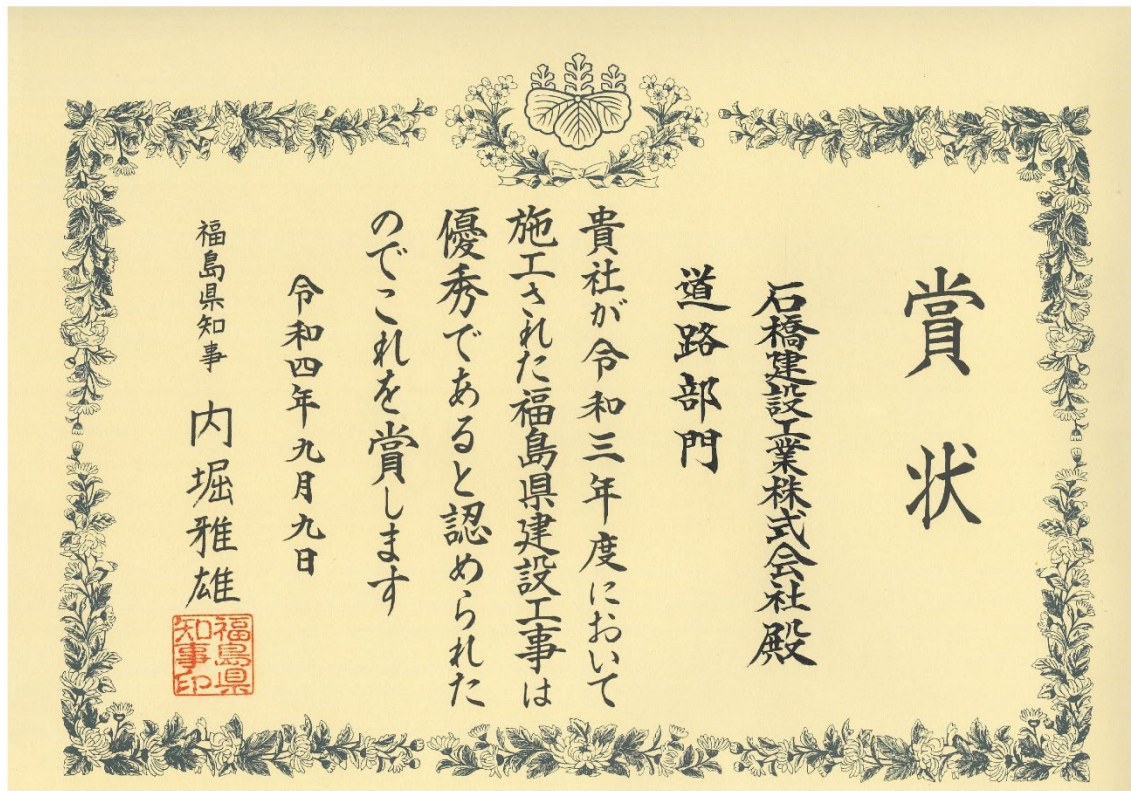 賞状
石橋建設工業株式会社殿
道路部門
貴社が令和三年度において
施工された福島県建設工事は
優秀であると認められた
のでこれを賞します
令和四年九月九日
福島県知事 内堀雅雄
福島県
知事印